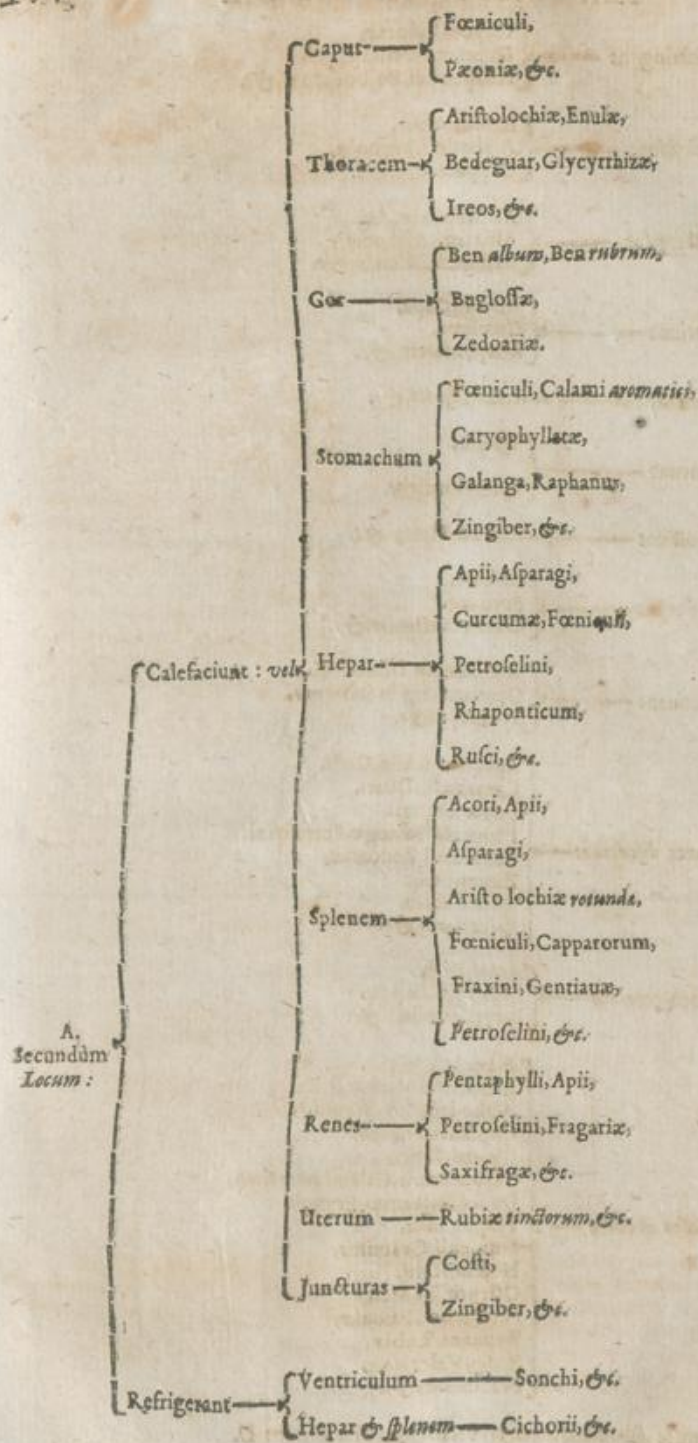 Caput
Fœniculi,
Pæoniæ, &c.
Thoracem
Ariſtolochiæ, Enulæ,
Bedeguar, Glycyrrhizæ,
Ireos, &c.
Cor
Ben album, Ben rubrum,
Bugloſſæ,
Zedoariæ.
Stomachum
Fœniculi, Calami aromatici,
Caryophyllatæ,
Galanga, Raphanus,
Zingiber, &c.
A.
Secundùm
Locum :
Calefaciunt : vel
Hepar
Apii, Aſparagi,
Curcumæ, Fœniculi,
Petroſelini,
Rhaponticum,
Ruſci, &c.
Splenem
Acori, Apii,
Aſparagi,
Ariſto lochiæ rotundæ,
Fœniculi, Capparorum,
Fraxini, Gentianæ,
Petroſelini, &c.
Renes
Pentaphylli, Apii,
Petroſelini, Fragariæ,
Saxifragæ, &c.
Uterum
Rubiæ tinctorum, &c.
Juncturas
Coſti,
Zingiber, &c.
Refrigerant
Ventriculum
Sonchi, &c.
Hepar & ſplenem
Cichorii, &c.